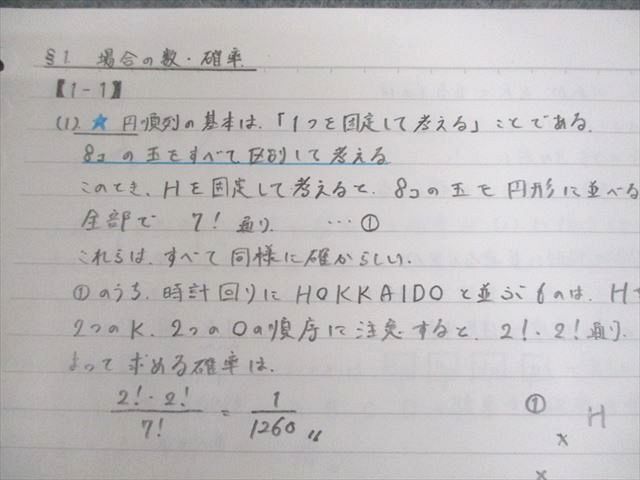 §1 場合の数・確率
【1-1】
(1) ★ 円順列の基本は、「1つを固定して考える」ことである。
8コの玉をすべて区別して考える
このとき、Hを固定して考えると、8コの玉を円形に並べる
全部で 7! 通り. …①
これらは、すべて同様に確からしい。
①のうち、時計回りにHOKKAIDOと並ぶものは、H
2つのK、2つのOの順序に注意すると、2!・2!通り.
よって求める確率は、
2!・2! / 7! = 1 / 1260 〃
① H
×
×